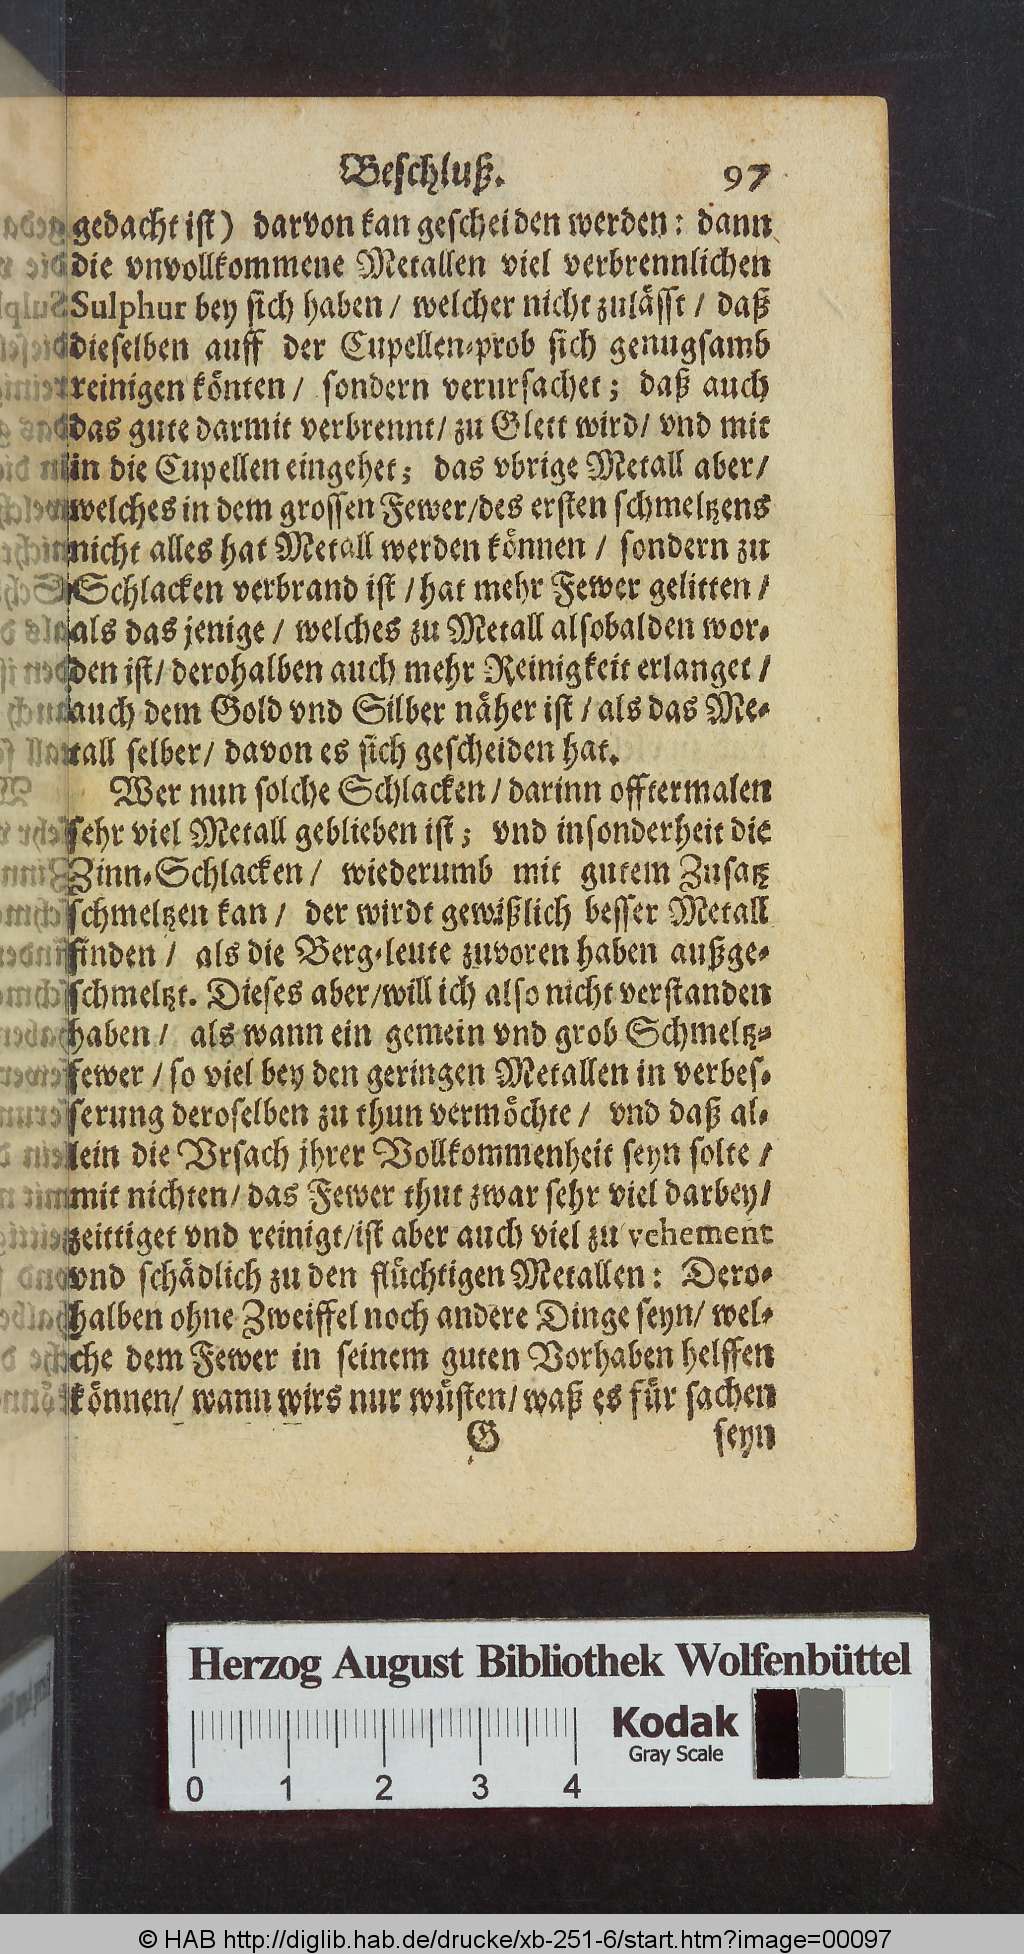 Beschluß. 97
gedacht ist) darvon kan gescheiden werden: dann
die vnvollkommene Metallen viel verbrennlichen
Sulphur bey sich haben / welcher nicht zulässt / daß
dieselben auff der Cupellen-prob sich genugsamb
reinigen könten / sondern verursachet; daß auch
das gute darmit verbrennt / zu Glett wird / vnd mit
in die Cupellen eingehet; das vbrige Metall aber /
welches in dem grossen Fewer / des ersten schmeltzens
nicht alles hat Metall werden können / sondern zu
Schlacken verbrand ist / hat mehr Fewer gelitten /
als das jenige / welches zu Metall alsobalden wor-
den ist / derohalben auch mehr Reinigkeit erlanget /
auch dem Gold vnd Silber näher ist / als das Me-
tall selber / davon es sich gescheiden hat.
Wer nun solche Schlacken / darinn offtermalen
sehr viel Metall geblieben ist; vnd insonderheit die
Zinn-Schlacken / wiederumb mit gutem Zusatz
schmeltzen kan / der wirdt gewißlich besser Metall
finden / als die Berg-leute zuvoren haben außge-
schmeltzt. Dieses aber / will ich also nicht verstanden
haben / als wann ein gemein vnd grob Schmeltz-
fewer / so viel bey den geringen Metallen in verbes-
serung deroselben zu thun vermöchte / vnd daß al-
lein die Vrsach jhrer Vollkommenheit seyn solte /
mit nichten / das Fewer thut zwar sehr viel darbey /
zeittiget vnd reinigt / ist aber auch viel zu vehement
vnd schädlich zu den flüchtigen Metallen: Dero-
halben ohne Zweiffel noch andere Dinge seyn / wel-
che dem Fewer in seinem guten Vorhaben helffen
können / wann wirs nur wüsten / waß es für sachen
G seyn
Herzog August Bibliothek Wolfenbüttel
Kodak
Gray Scale
0 1 2 3 4
© HAB http://diglib.hab.de/drucke/xb-251-6/start.htm?image=00097